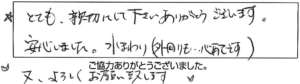 とても、親切にして下さいありがとうございます。
安心しました。水まわり(外回りも…心配です)
ご協力ありがとうございました。
又、よろしくお願い致します